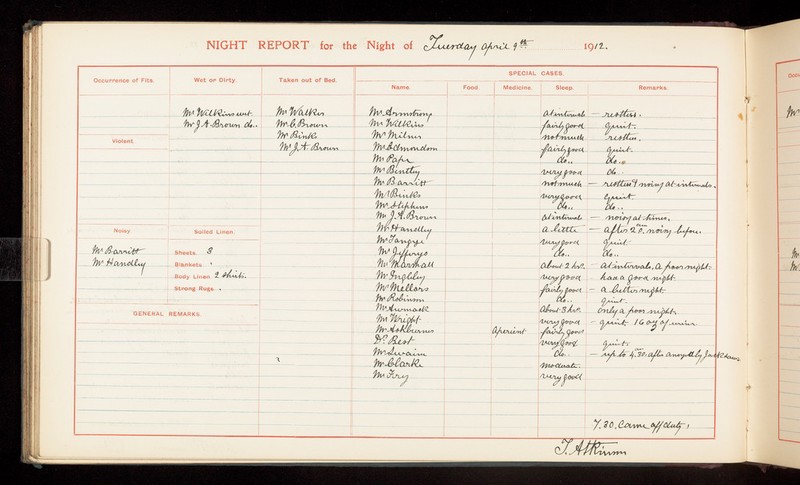 NIGHT REPORT for the Night of Tuesday April 9th 1912.
SPECIAL CASES.
Occurrence of Fits. Wet or Dirty. Taken out of Bed. Name. Food. Medicine. Sleep. Remarks.
Mr Wilkins wet. Mr Walker Mr Armstrong at intervals – restless.
Mr J. A. Brown do.. Mr C. Brown Mr Wilkins fairly good quiet.
Violent. Mr Binks Mr Milner not much restless.
Mr J. A. Brown Mr Edmondson fairly good quiet.
Mr Pape do.. do..
Mr Bentley very good do
Mr Barritt not much – restless & noisy at intervals.
Mr Binks very good quiet.
Mr Stephens do.. do..
Mr J. A. Brown at intervals – noisy at times.
Noisy Soiled Linen Mr Handley a little – after 2 a.m. noisy before.
Mr Tangye very good quiet
Mr Barritt Sheets 8 Mr Jefferys do.. do..
Mr Handley Blankets Mr Marshall about 2 hrs. – at intervals, a poor night.
Body Linen 2 shirts. Mr Ingleby very good has a good night.
Strong Rugs. Mr Mellors fairly good – a better night.
Mr Robinson do.. quiet.
GENERAL REMARKS. about 3 hrs. only a poor night.
Mr Wright very good – quiet. 16 oz of urine.
Mr Ashburner Aperient fairly good
Dr Best very good quiet.
Mr Swaine do. – up to 4.30 after
Mr Clarke moderate.
Mr Fry very good
7.30. Came off duty,
J. Atkinson